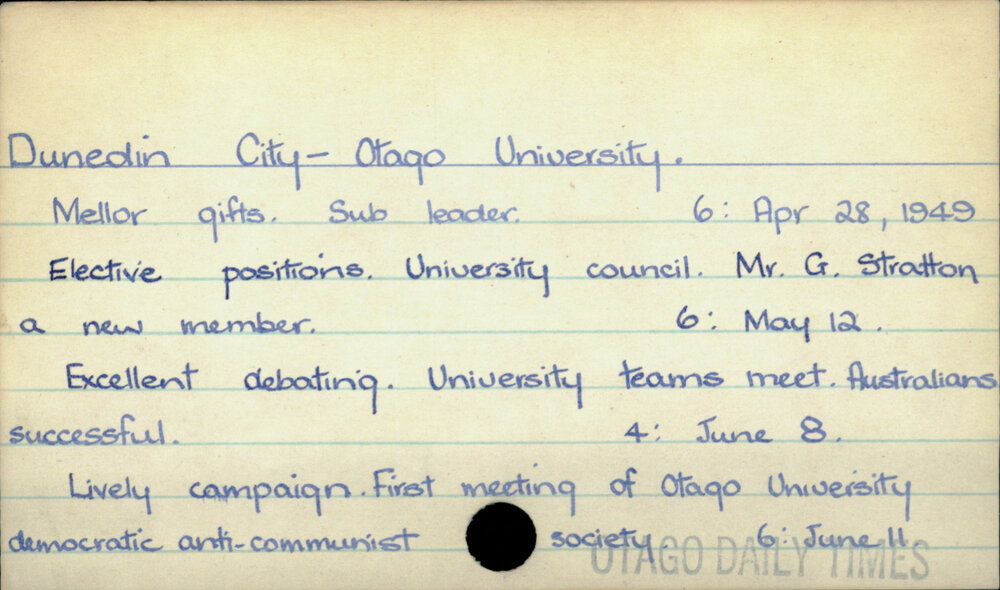 Dunedin City - Otago University.
Mellor gifts. Sub leader. 6: Apr 28, 1949
Elective positions. University council. Mr. G. Stratton
a new member. 6: May 12.
Excellent debating. University teams meet. Australians
successful. 4: June 8.
Lively campaign. First meeting of Otago University
democratic anti-communist society. 6: June 11
OTAGO DAILY TIMES